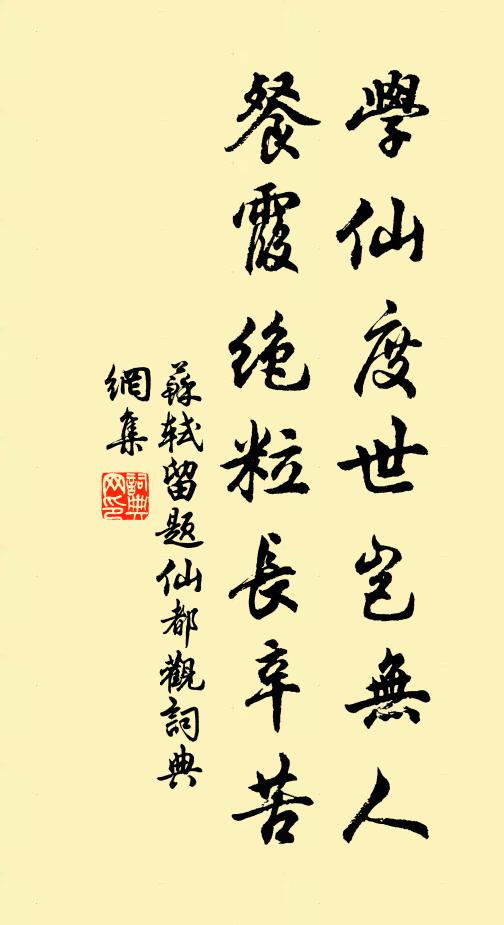 學仙度世豈無人
餐霞絶粒長辛苦
蘇軾留題仙都觀詞典
網集
詞典
网印